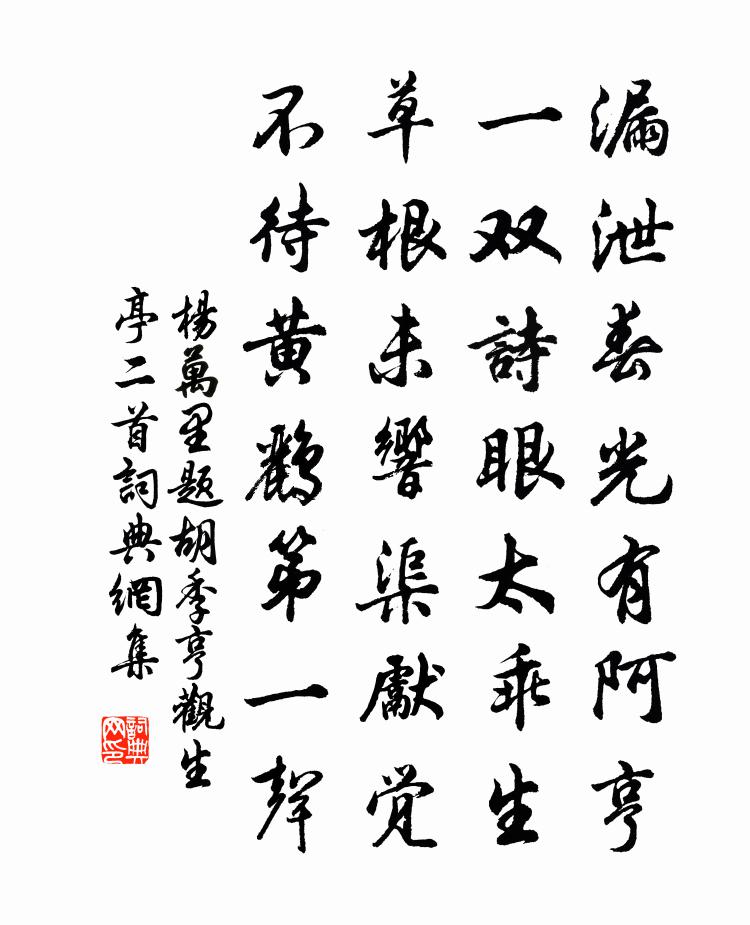 漏泄春光有阿亨
一双詩眼太乖生
草根未響渠獻觉
不待黄鸝第一聲
楊萬里題胡季亨觀生
亭二首詞典網集
詞典网印